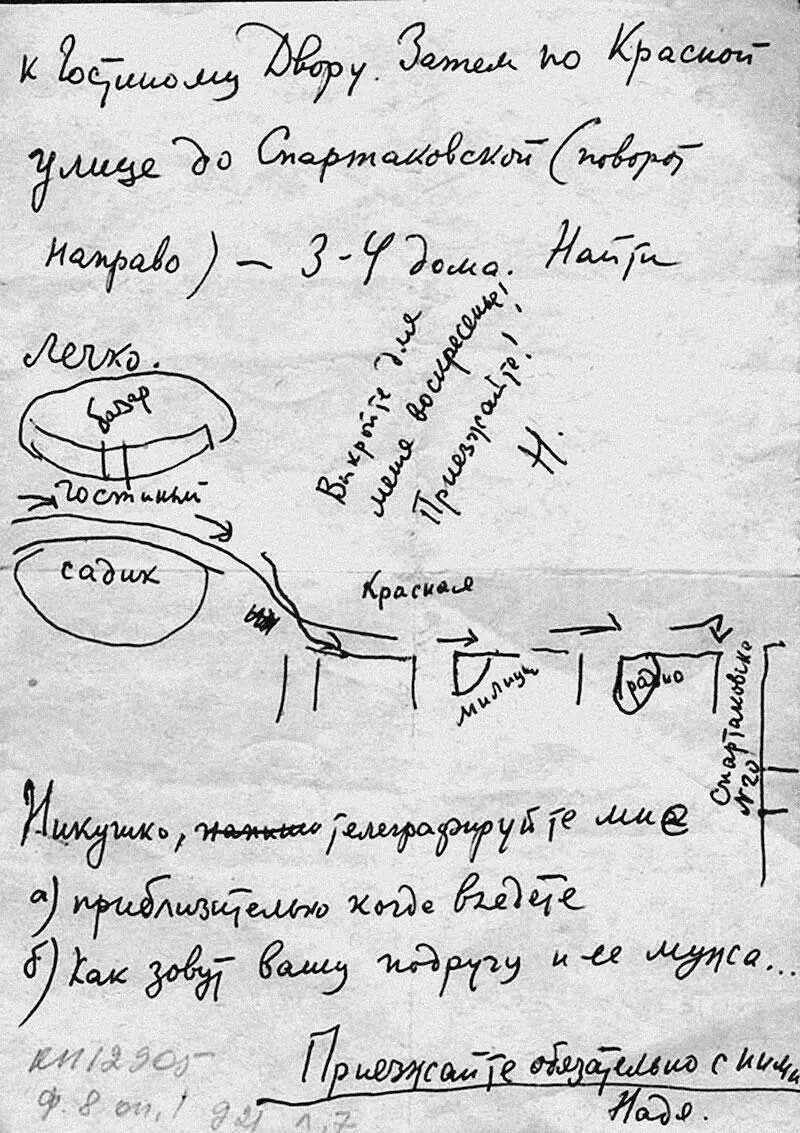 к Гостиному Двору. Затем по Красной
улице до Спартаковской (поворот
направо) – 3-4 дома. Найти
легко.
Выкройте для
меня воскресенье!
Приезжайте!
Н.
базар
Гостиный
садик
Красная
милиц
радио
Спартаковск
N20
Никушко, телеграфируйте мне
а) приблизительно когда въедете
б) Как зовут вашу подругу и ее мужа...
Приезжайте обязательно с ними
Надя.
КП12905
Ф. 8 оп. 1 д21 л. 7